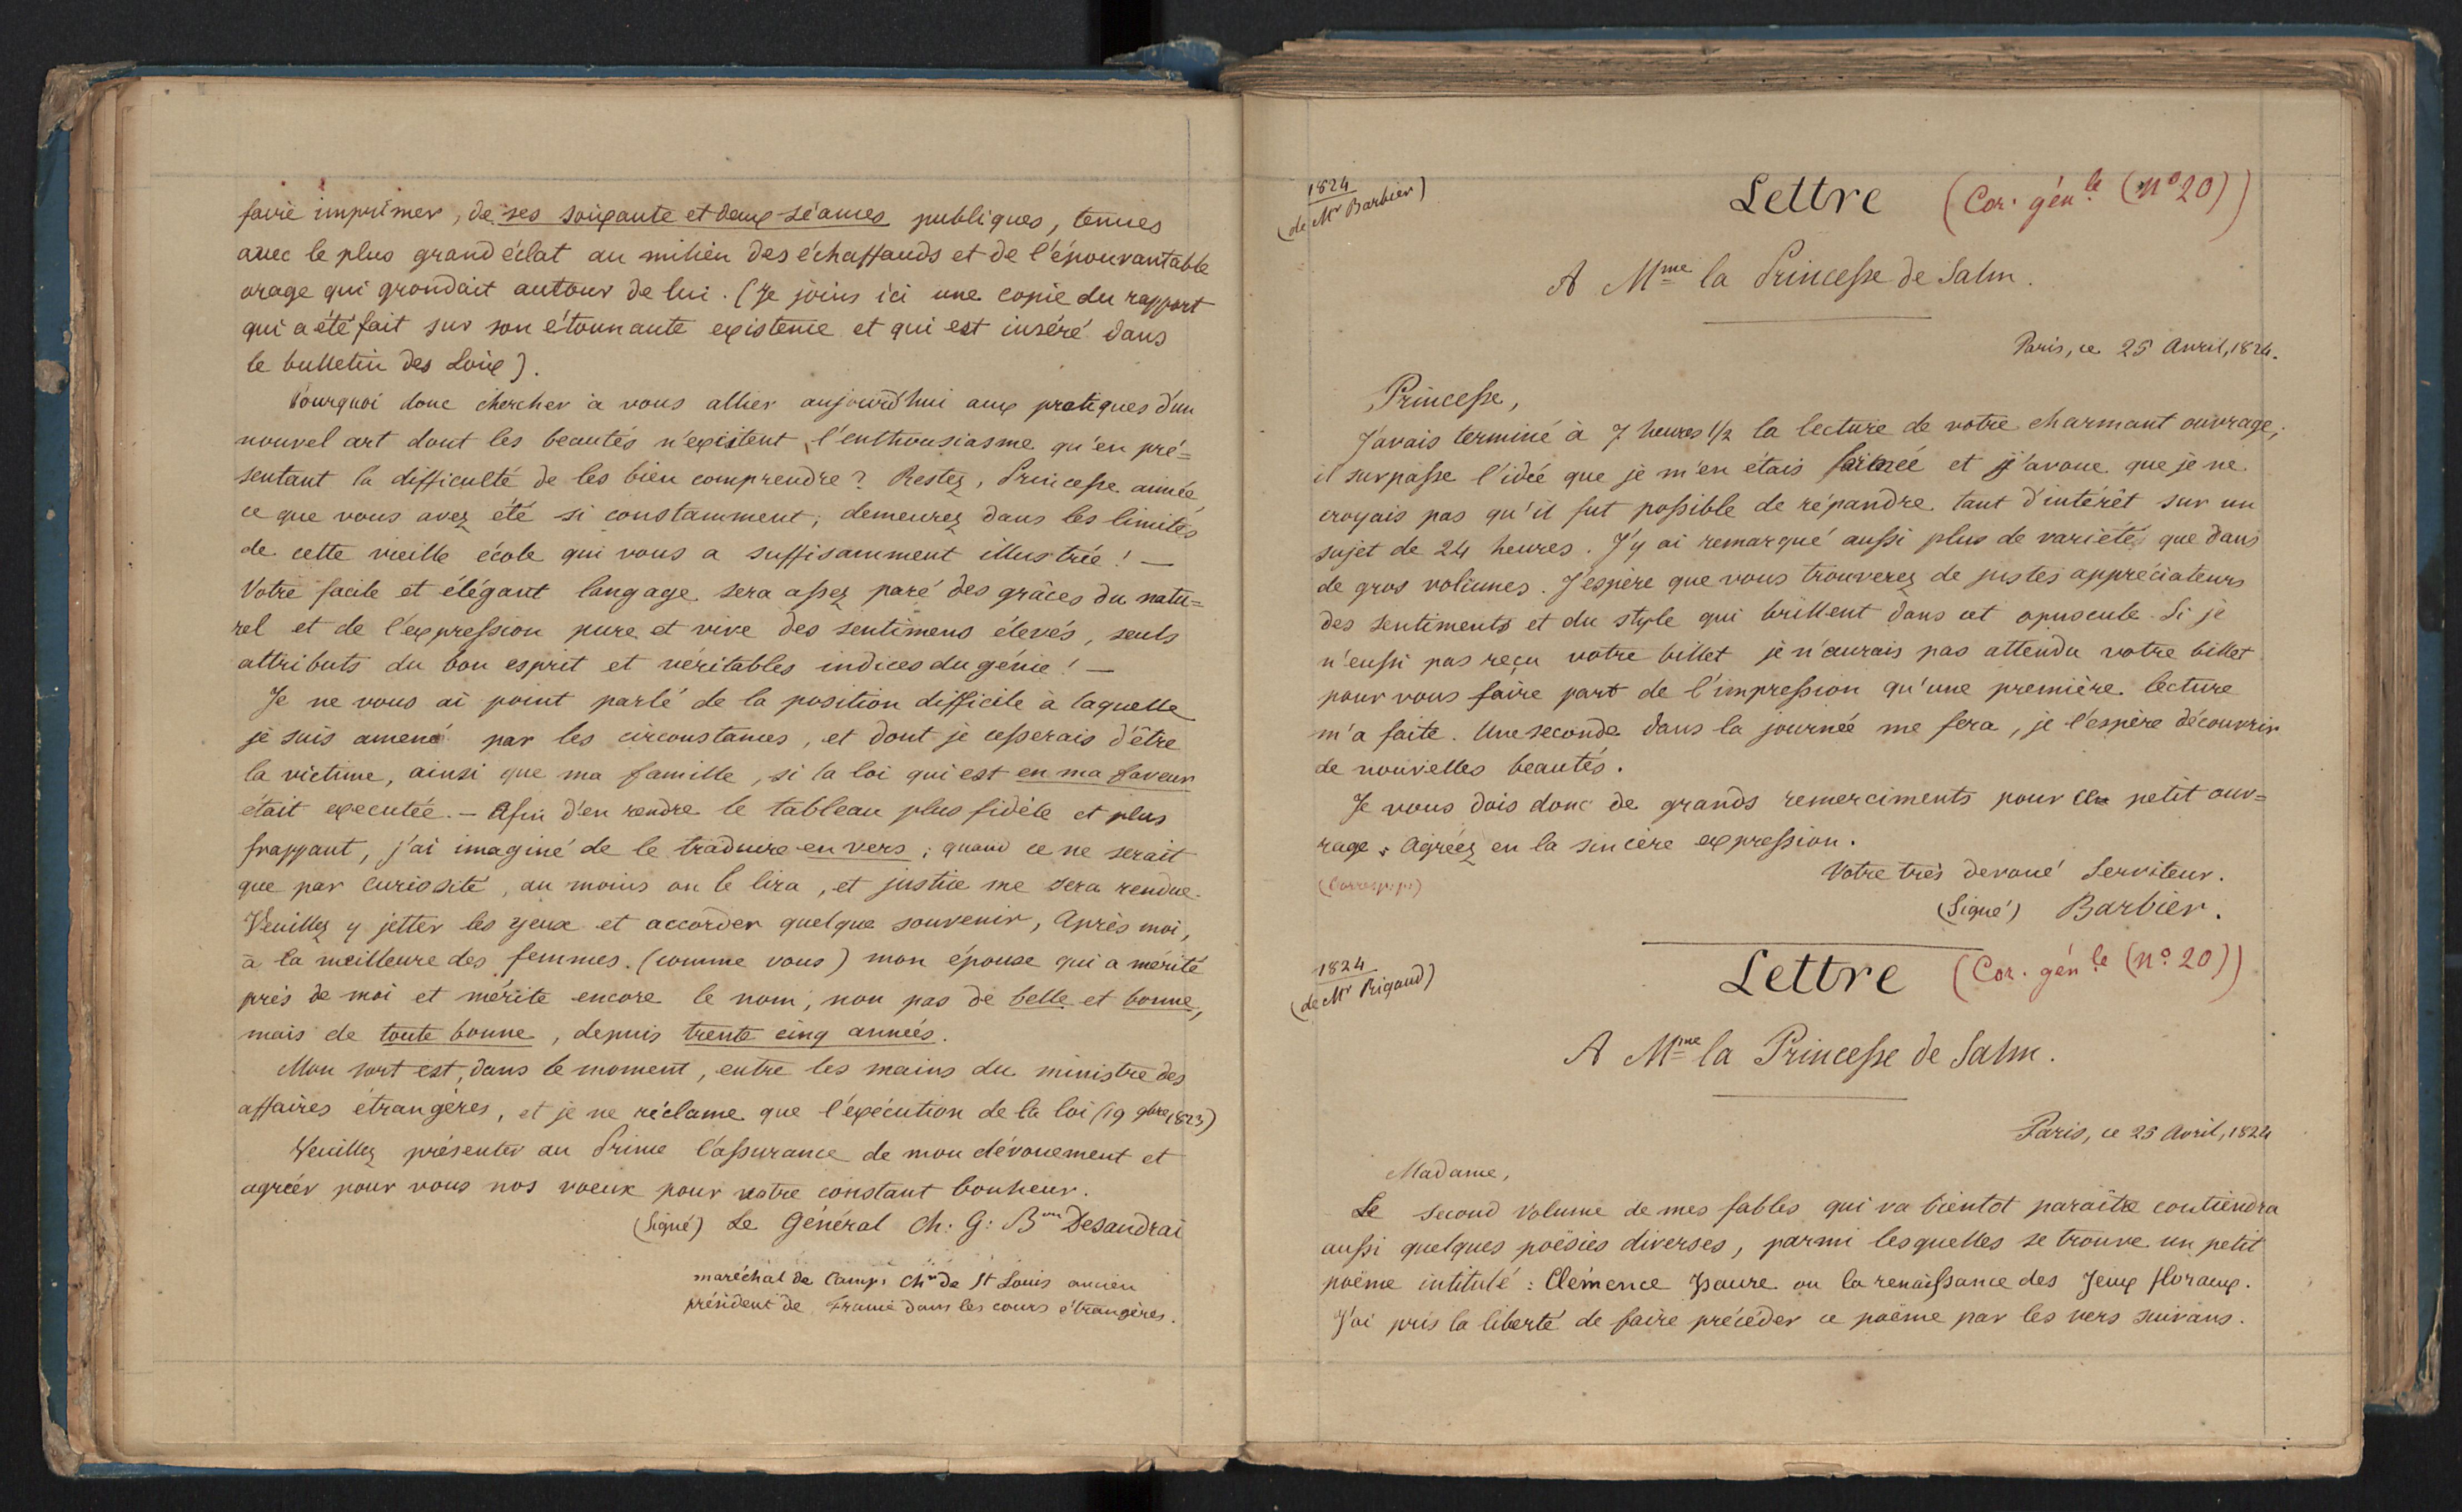 faire imprimer, de ses soixante et deux séances publiques, tenues
avec le plus grand éclat au milieu des échaffauds et de l'épouvantable
orage qui grondait autour de lui. (Je joins ici une copie du rapport
qui a été fait sur son étonnante existence et qui est inséré dans
le bulletin des Loix).
Pourquoi donc chercher à vous allier aujourd'hui aux pratiques d'un
nouvel art dont les beautés n'existent l'enthousiasme qu'en pré=
sentant la difficulté de les bien comprendre? Restez, Princesse aimée
ce que vous avez été si constamment; demeurez dans les limites
de cette vieille école qui vous a suffisamment illustrée! —
Votre facile et élégant langage sera assez paré des grâces du natu=
rel et de l'expression pure et vive des sentimens élevés, seuls
attributs du bon esprit et véritables indices du génie! —
Je ne vous ai point parlé de la position difficile à laquelle
je suis amené par les circonstances, et dont je cesserais d'être
la victime, ainsi que ma famille, si la loi qui est en ma faveur
était executée. — Afin d'en rendre le tableau plus fidèle et plus
frappant, j'ai imaginé de le traduire en vers; quand ce ne serait
que par curiosité, au moins on le lira, et justice me sera rendue.
Veuillez y jetter les yeux et accorder quelque souvenir, Après moi,
à la meilleure des femmes. (comme vous) mon épouse qui a mérité
près de moi et mérite encore le nom, non pas de belle et bonne,
mais de toute bonne, depuis trente cinq années.
Mon sort est, dans le moment, entre les mains du ministre des
affaires étrangères, et je ne réclame que l'exécution de la loi (19 9bre 1823)
Veuillez présenter au Prince l'assurance de mon dévouement et
agréer pour vous nos voeux pour votre constant bonheur.
(Signé) Le Général Ch: G: Bon Desaudrai
maréchal de Camp, Chr de St Louis ancien
président de France dans les cours étrangères.
1824
(de Mr Barbier)
Lettre (Cor. génle (n° 20))
A Mme la Princesse de Salm.
Paris, ce 25 Avril, 1824.
Princesse,
J'avais terminé à 7 heures 1/2 la lecture de votre charmant ouvrage;
il surpasse l'idée que je m'en étais formée et j'avoue que je ne
croyais pas qu'il fut possible de répandre tant d'intérêt sur un
sujet de 24 heures. J'y ai remarqué aussi plus de variétés que dans
de gros volumes. J'espère que vous trouverez de justes appréciateurs
des sentiments et du style qui brillent dans cet opuscule. Si je
n'eussi pas reçu votre billet je n'aurais pas attendu votre billet
pour vous faire part de l'impression qu'une première lecture
m'a faite. Une seconde dans la journée me fera, je l'espère découvrir
de nouvelles beautés.
Je vous dois donc de grands remerciments pour ce petit ouv=
rage. Agréez en la sincère expression.
Votre très dévoué Serviteur.
(Signé) Barbier.
1824
(de Mr Rigaud)
Lettre (Cor. génle (n° 20))
A Mme la Princesse de Salm.
Paris, ce 25 Avril, 1824
Madame,
Le second volume de mes fables qui va bientot paraître contiendra
aussi quelques poësies diverses, parmi lesquelles se trouve un petit
poëme intitulé: Clémence Isaure ou la renaissance des Jeux floraux.
J'ai pris la liberté de faire précéder ce poëme par les vers suivans.